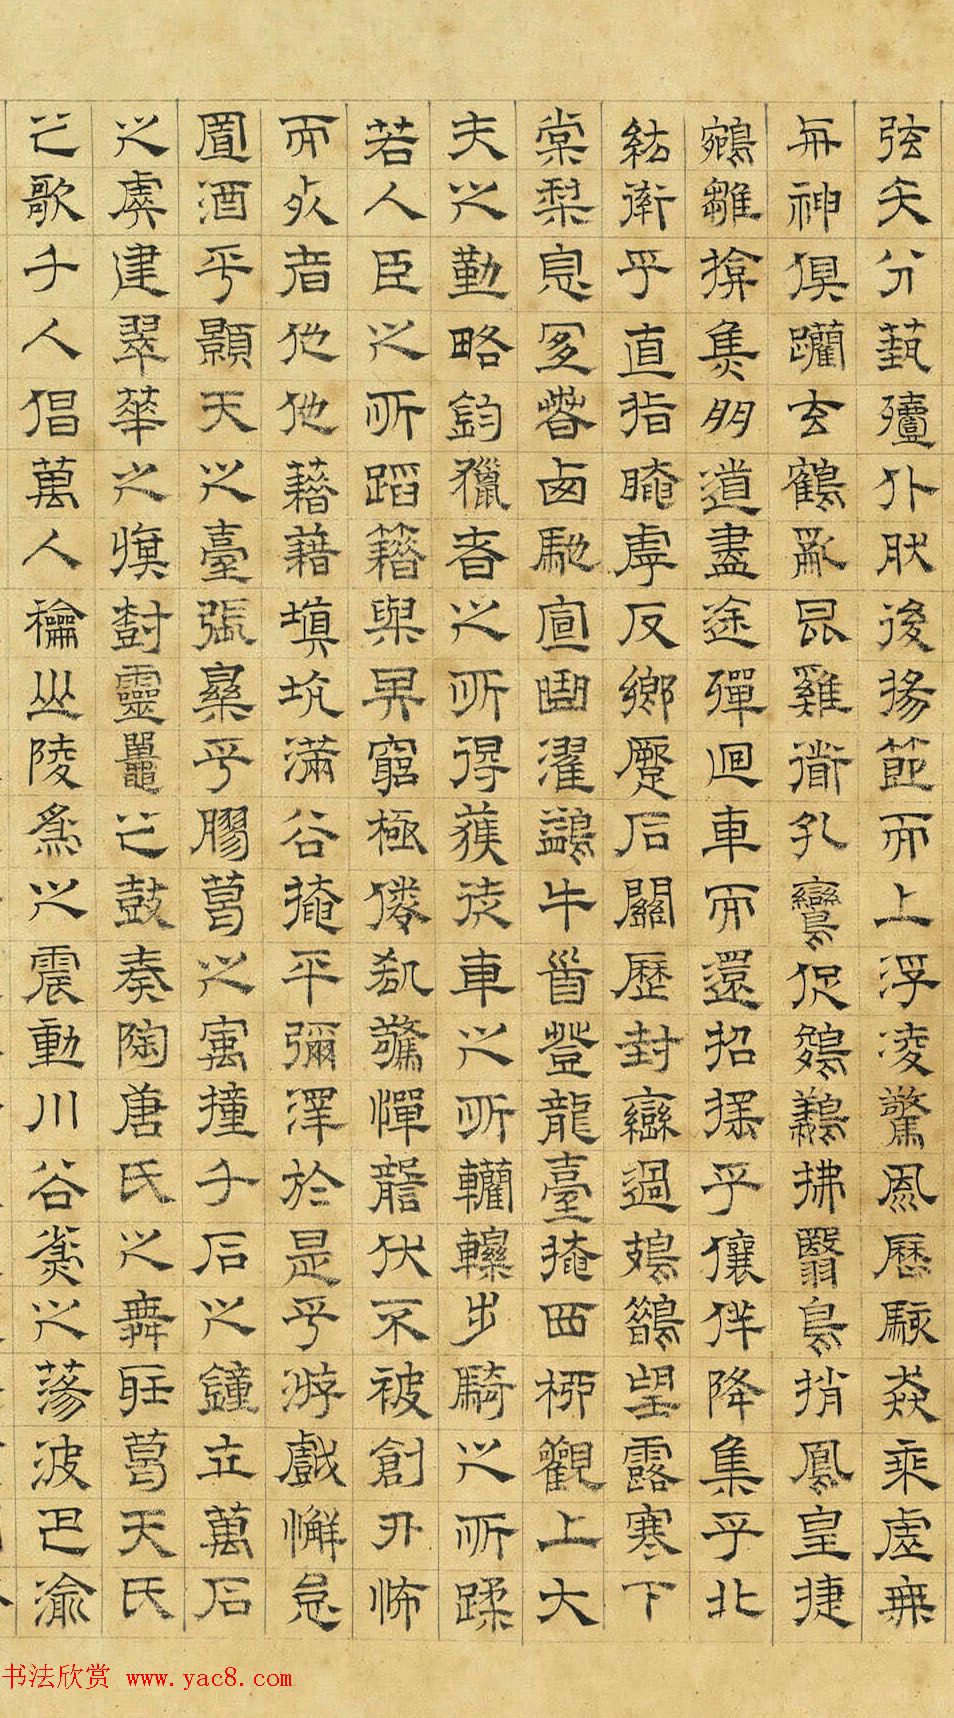 弦矢分蓺殪仆肰後揚節而上浮凌驚風歷駭猋乘虛無
與神俱躪玄鶴亂昆雞遒孔鸞促鵔鸃拂翳鳥捎鳳皇捷
鵷雛揜焦朋道盡途殫迴車而還招搖乎儴佯降集乎北
紘衛乎直指晻虖反鄉蹷石關歷封巒過鳷鵲望露寒下
棠梨息宜春西馳宣曲濯鷁牛首登龍臺掩西柳觀士大
夫之勤略鈞獵者之所得獲徒車之所轥轢步騎之所蹂
若人臣之所蹈籍與其窮極倦㕁驚憚讋伏不被創刃怖
而死者他他藉藉填坑滿谷掩平彌澤於是乎游戲懈怠
置酒乎顥天之臺張樂乎膠葛之寓撞千石之鐘立萬石
之虡建翠華之旗樹靈鼉之鼓奏陶唐氏之舞聽葛天氏
之歌千人倡萬人龢山陵為之震動川谷為之蕩波巴渝
书法欣赏 www.yac8.com